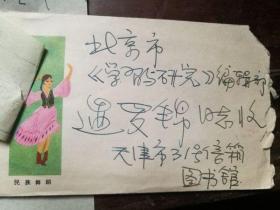 北京市
《学习与研究》编辑部
遇罗锦 收
天津市31号信箱
图书館
民族舞蹈